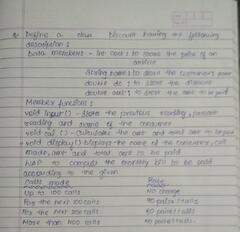 Q. Define a class Discount having the following
description :
Data members - int cost ; to store the price of an
article
String name ; to store the customer's name
double dc ; to store the discount
double amt ; to store the amt to be paid
Member functions :
void input() - Store the previous reading, present
reading and name of the consumer
void cal () - Calculates the amt and total amt to be paid
void display () displays the name of the consumer, call
made, amt and total amt to be paid
WAP to compute the monthly bill to be paid
according to the given
Calls made Rate
Up to 100 calls NO charge
For the next 100 calls 90 paise/calls
For the next 200 calls 80 paise/calls
More than 400 calls 70 paise/calls